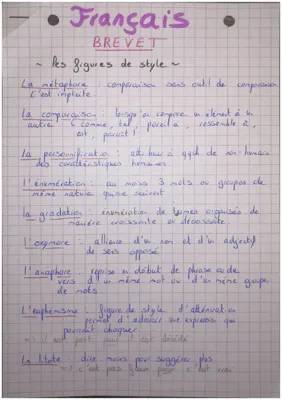 Français
BREVET
~ Les figures de style ~
La métaphore : comparaison sans outil de comparaison
C'est implicite.
La comparaison : lorsqu'on compare un élément à un
autre. comme, tel, pareil à, ressemble à
est, parait !
La personnification : attribuer à qqch de non humain
des caractéristiques humaines
L'énumération : au moins 3 mots ou groupes de
même nature qui se suivent
La gradation : énumération de termes organisés de
manière croissante ou décroissante.
L'oxymore : alliance d'un nom et d'un adjectif
de sens opposé
L'anaphore : reprise en début de phrase ou de
vers d'un même mot ou d'un même groupe
de mots.
L'euphémisme : figure de style d'atténuation
permet d'adoucir une expression qui
pourrait choquer
=> il est parti pour
La litote : dire moins pour suggérer plus
=> c'est pas